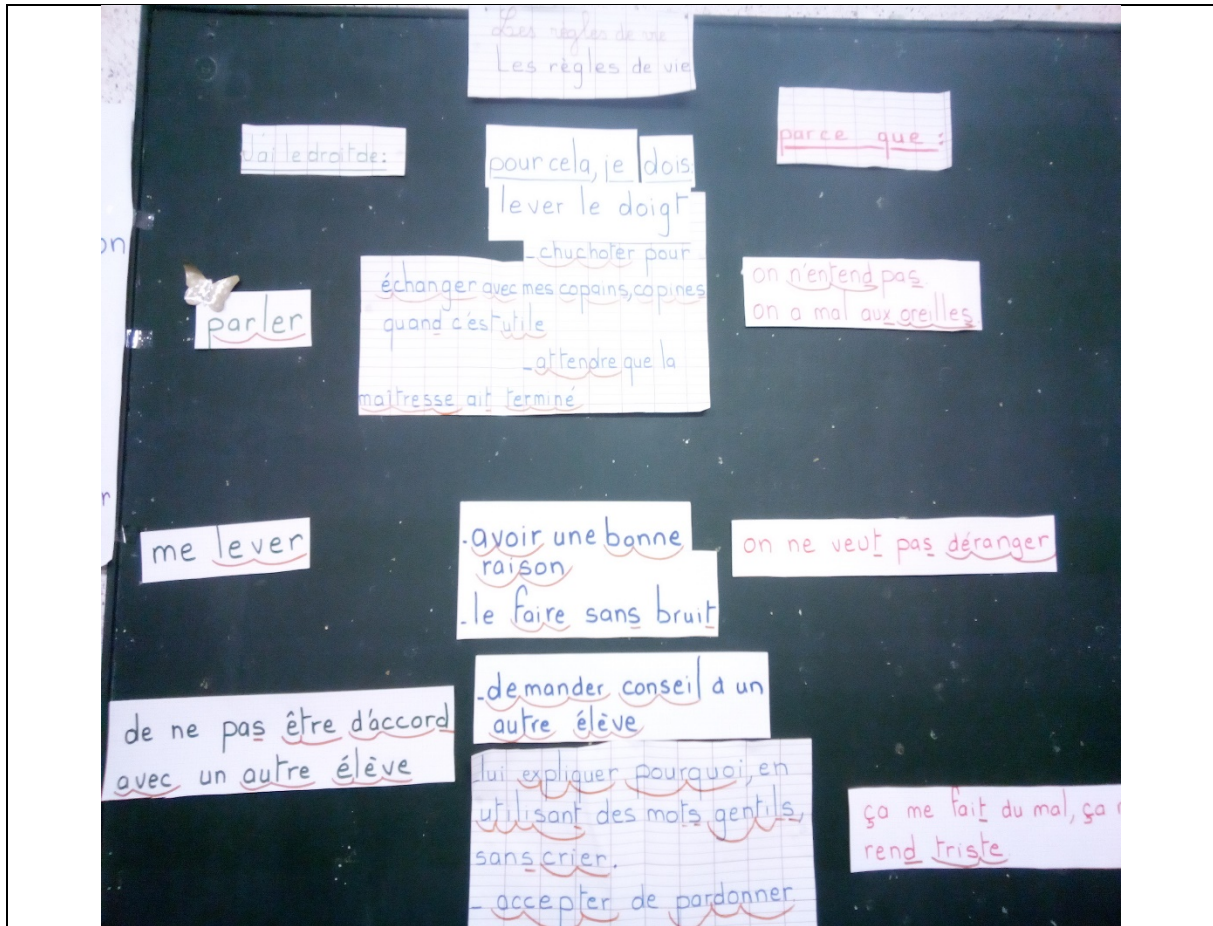 Les règles de vie
Les règles de vie
J'ai le droit de:
pour cela, je dois
parce que:
parler
lever le doigt
-chuchoter pour
échanger avec mes copains, copines
quand c'est utile
-attendre que la
maîtresse ait terminé
on n'entend pas
on a mal aux oreilles
me lever
-avoir une bonne
raison
-le faire sans bruit
on ne veut pas déranger
de ne pas être d'accord
avec un autre élève
-demander conseil à un
autre élève
lui expliquer pourquoi, en
utilisant des mots gentils,
sans crier.
- accepter de pardonner
ça me fait du mal, ça
rend triste
on
r